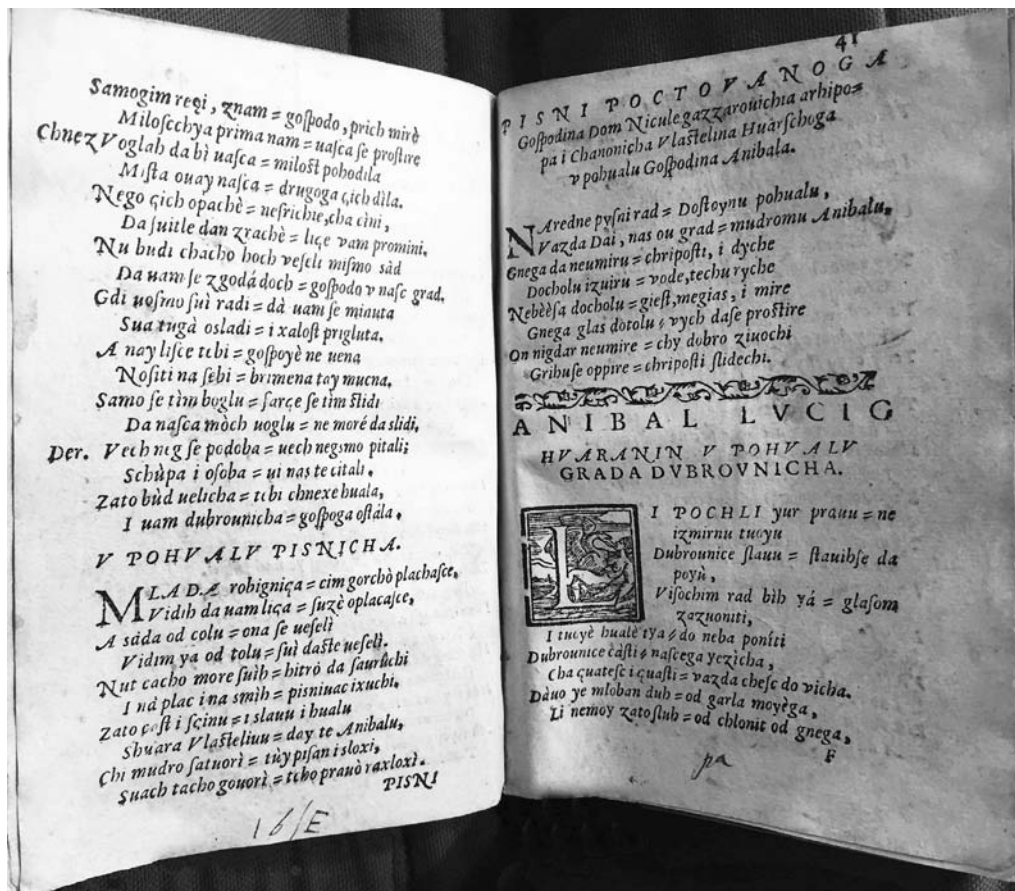 Samogim reçi, znam = goſpodo, prich mirè
Miloſcchya prima nam = uaſca ſe proſtire
Chnez Voglah da bì uaſca = miloſt pohodila
Miſta ouay naſca = drugoga çich dìla.
Nego çich opachè = nesrichie, cha cìni,
Da ſuitle dan zrachè = liçe vam promini.
Nu budi chacho hoch veſeli miſmo sàd
Da uam ſe zgodá doch = goſpodo v naſc grad.
Gdi uoſmo ſuì radi = dà uam ſe minuta
Sua tugà osladi = i xaloſt prigluta.
A nay liſce tebi = goſpoyè ne uena
Noſiti na ſebi = brimena tay mucna.
Samo ſe tìm boglu = ſarçe ſe tìm ſlidi
Da naſca mòch uoglu = ne moré da slidi,
Der. Vech neg ſe podoba = uech negsmo pitali;
Schùpa i oſoba = ui nas te citali.
Zato bùd uelicha = tebi chnexe huala,
I uam dubrounicha = goſpoga oſtála.
V POHVALV PISNICHA.
MLADA robigniça = cim gorchò plachaſce,
Vidih da uam liça = ſuzè oplacaſce,
A sàda od colu = ona ſe ueſelì
Vidim ya od tolu = ſuì daſte ueſelì.
Nut cacho more ſuìh = hitrò da ſaurùchi
I nà plac i na smìh = pisniuac ixuchi.
Zato caſt i ſcinu = i slauu i hualu
Shuara Vlaſteliuu = day te Anibalu,
Chi mudro ſatuorì = tùy piſan i sloxi,
Suach tacho gouorì = tcho prauò raxloxì.
PISNI
16/E
41
PISNI POCTOVANOGA
Goſpodina Dom Nicule gazzarouichia arhipo=
pa i Chanonicha Vlaſtelina Huarſchoga
v pohualu Goſpodina Anibala.
NAredne pyſni rad = Doſtoynu pohualu,
Vazda Dài, nas ou grad = mudromu Anibalu.
Gnega da neumiru = chripoſti, i dyche
Docholu izuiru = vode, techu ryche
Nebèèſa docholu = gieſt, megias, i mire
Gnega glas dotolu = vych daſe proſtire
On nigdar neumire = chy dobro ziuochi
Gribuſe oppire = chripoſti slidechi.
ANIBAL LVCIG
HVARANIN V POHVALV
GRADA DVBROVNICHA.
I POCHLI yur prauu = ne
izmirnu tuoyu
Dubrounice ſlauu = ſtauihſe da
poyù,
Viſochim rad bìh yá = glaſom
zazuoniti,
I tuoyè hualè tya = do neba poníti
Dubrounice càſti = naſcega yezìcha,
Cha çuateſc i quaſti = vazda cheſc do vicha.
Dàuo ye mloban duh = od garla moyèga,
Li nemoy zato ſluh = od chlonit od gnega,
F
pa